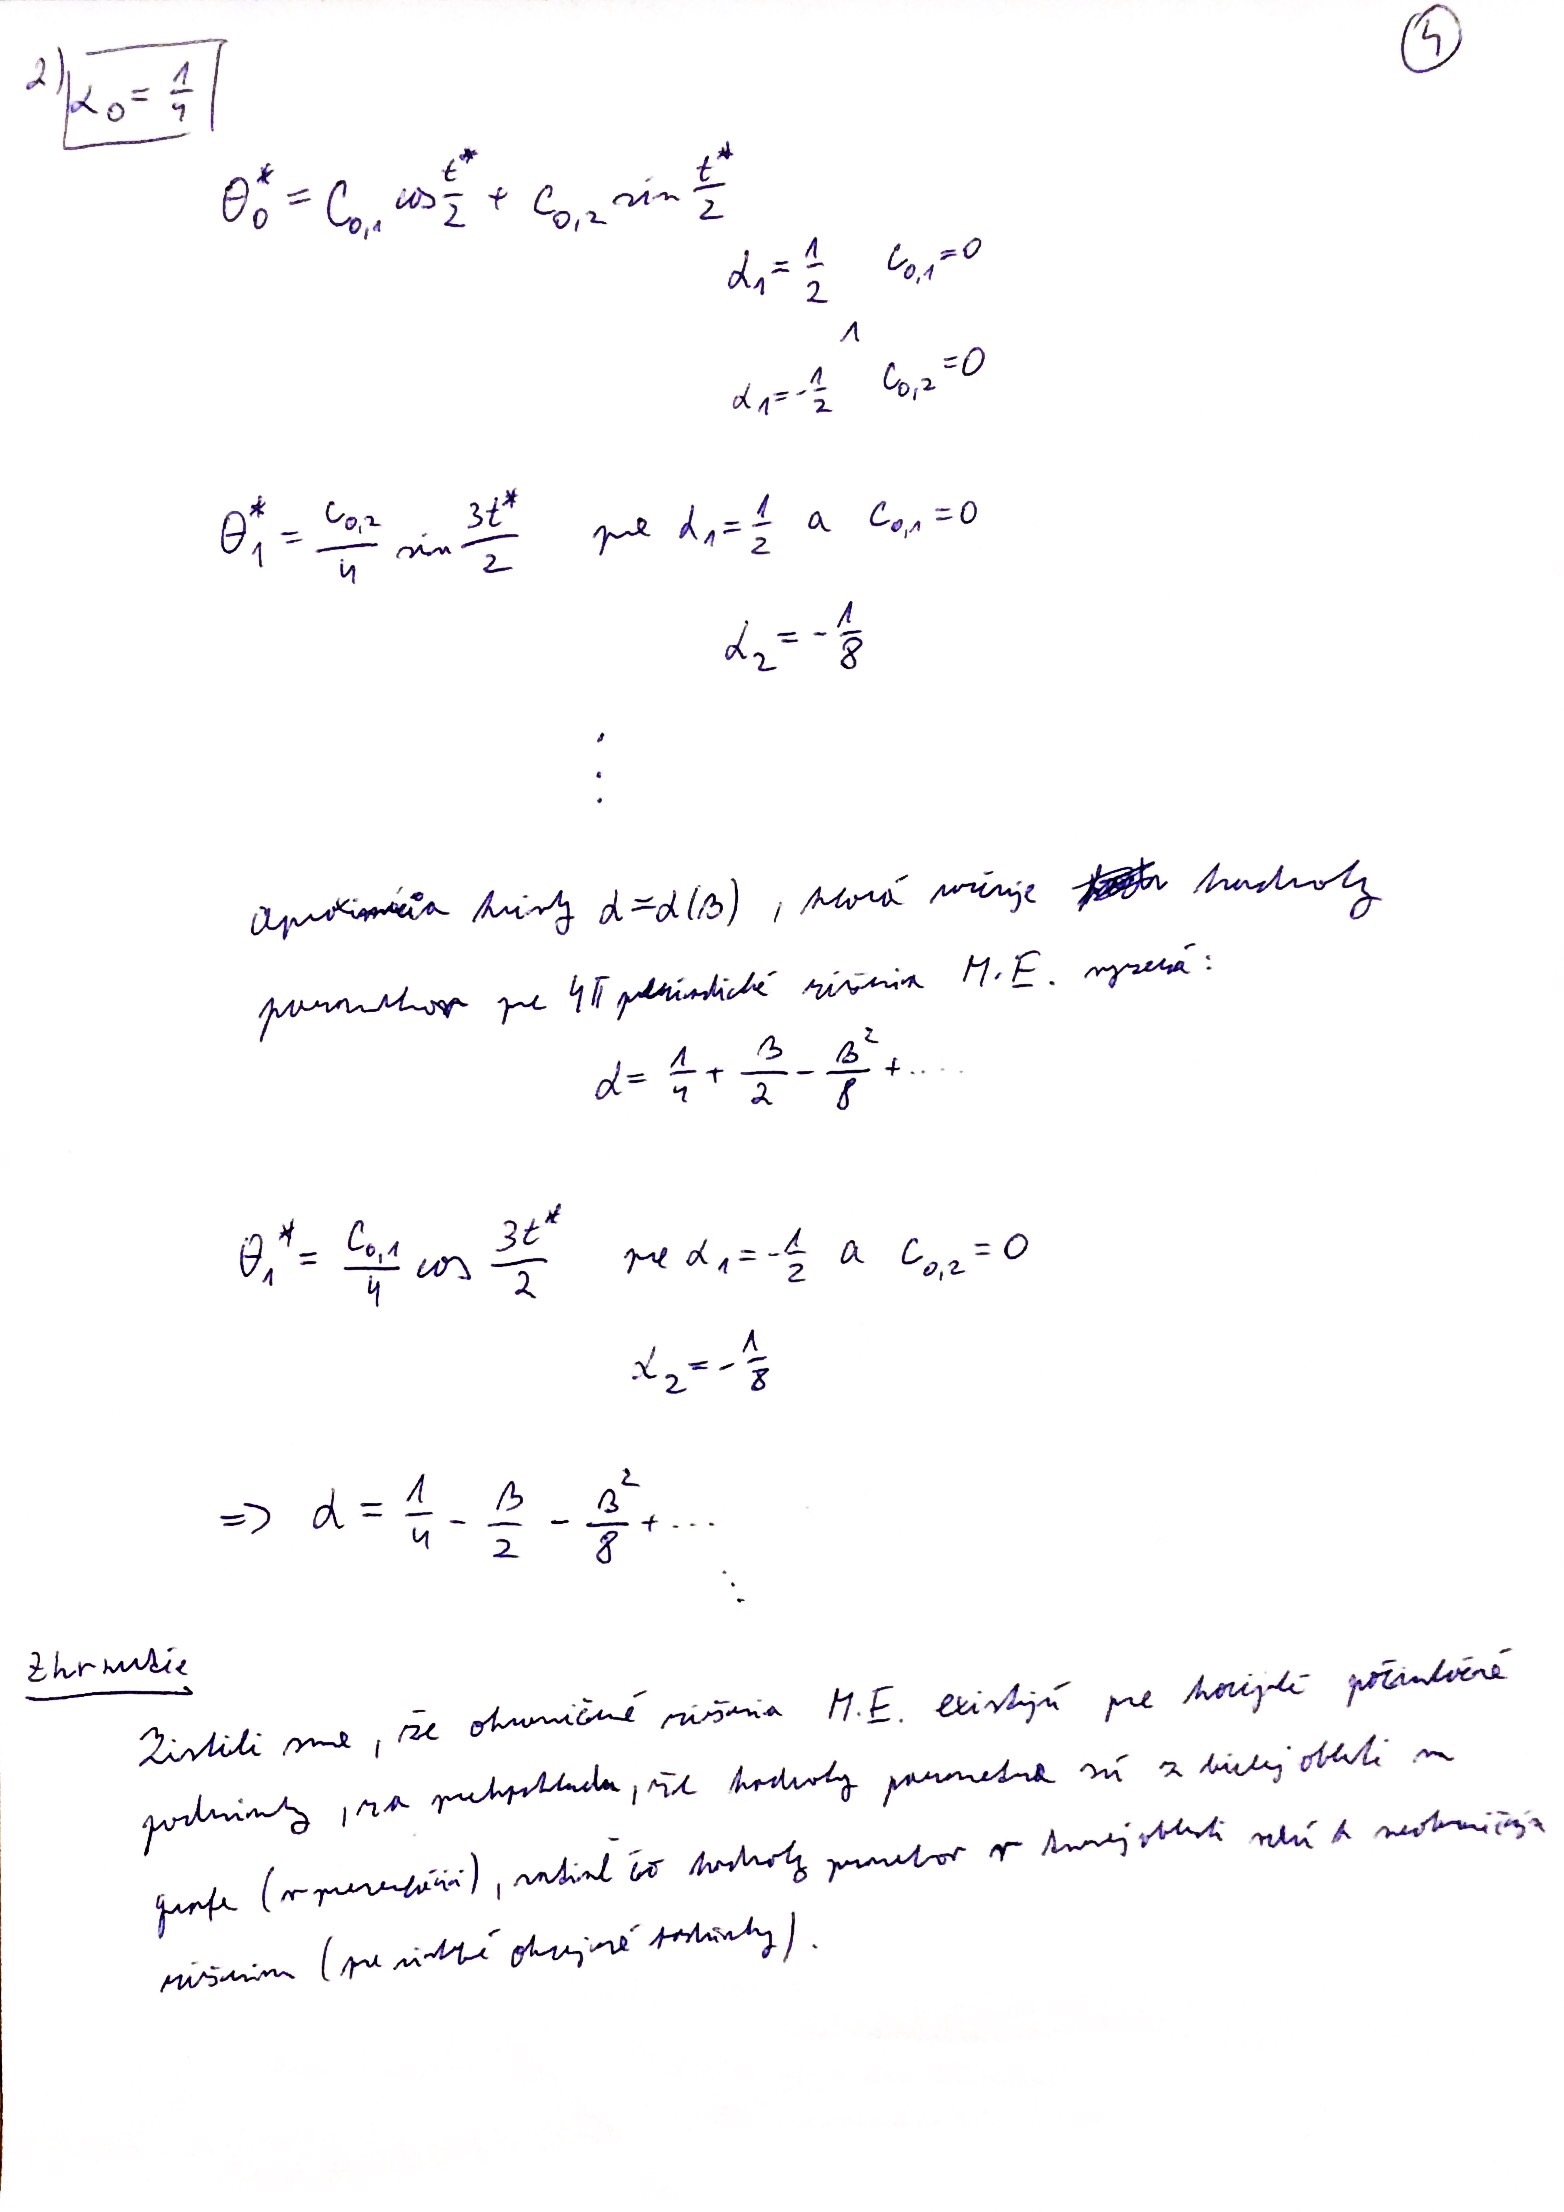 4
2) α₀ = 1/4
θ₀* = C₀,₁ cos t*/2 + C₀,₂ sin t*/2
α₁ = 1/2 C₀,₁ = 0
∧
α₁ = -1/2 C₀,₂ = 0
θ₁* = C₀,₂/4 sin 3t*/2 pre α₁ = 1/2 a C₀,₁ = 0
α₂ = -1/8
⋮
aproximácia krivky α = α(β), ktorá určuje hodnoty
parametrov pre 4π periodické riešenia M.E. vyzerá:
α = 1/4 + β/2 - β²/8 + ....
θ₁* = C₀,₁/4 cos 3t*/2 pre α₁ = -1/2 a C₀,₂ = 0
α₂ = -1/8
=> α = 1/4 - β/2 - β²/8 + ...
⋱
Zhrnutie
Zistili sme, že ohraničené riešenia M.E. existujú pre počiatočné
podmienky, za predpokladu, že hodnoty parametra sú z bielej oblasti na
grafe (v prezentácii), zatiaľ čo hodnoty parametrov v oblasti vedú k
riešeniam (pre okrajové podmienky).